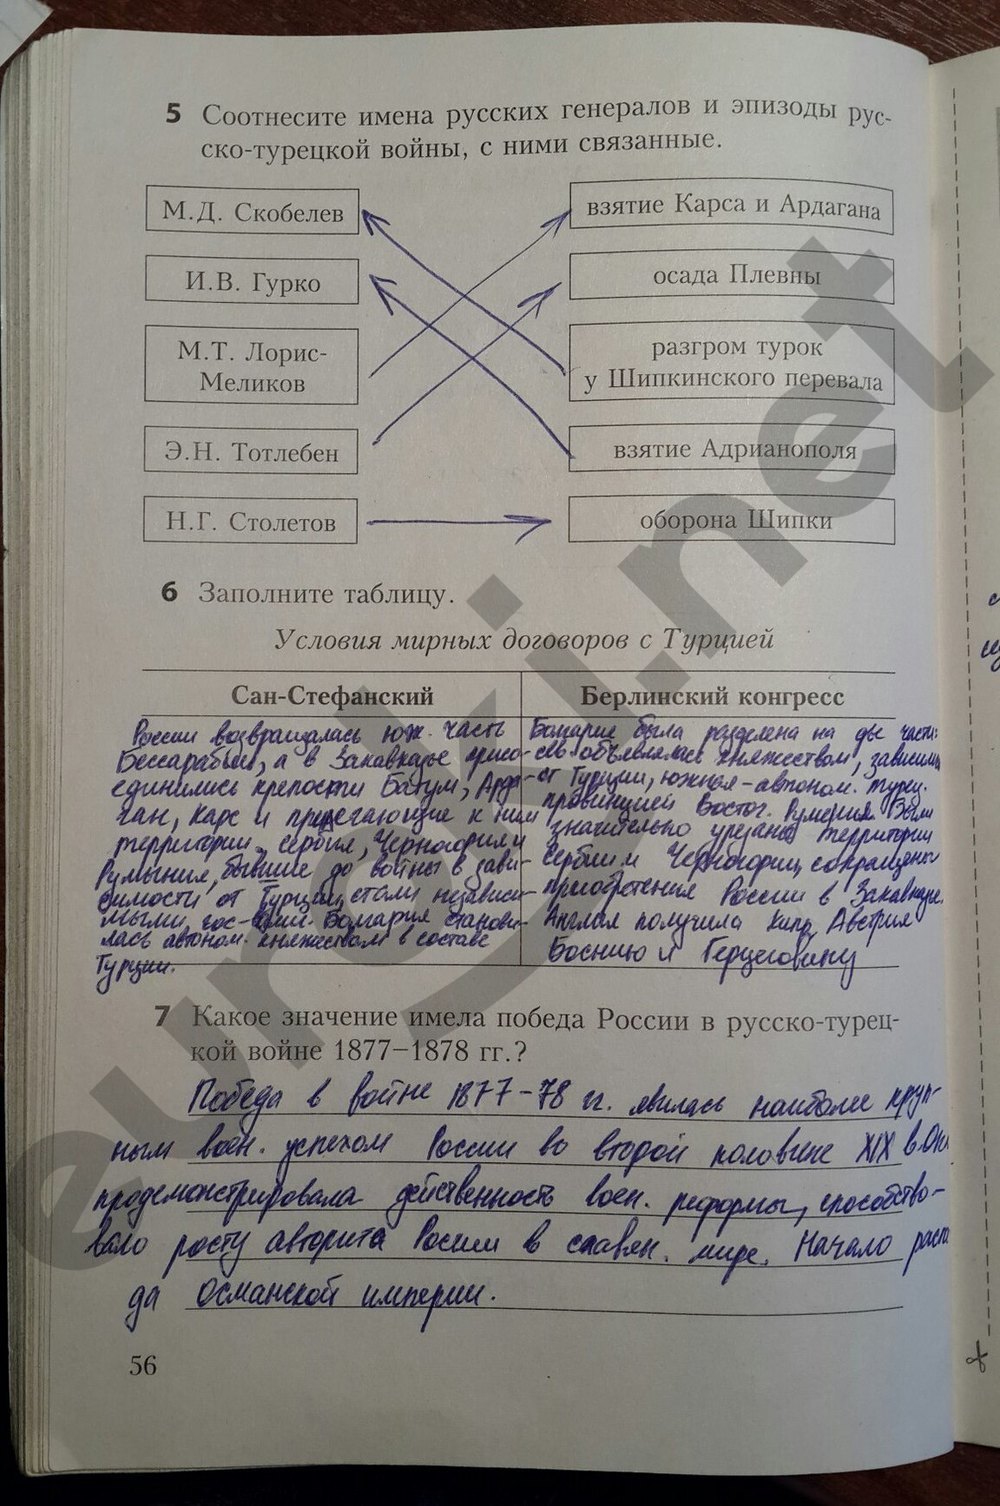 5 Соотнесите имена русских генералов и эпизоды рус-
ско-турецкой войны, с ними связанные.
М.Д. Скобелев
взятие Карса и Ардагана
И.В. Гурко
осада Плевны
М.Т. Лорис-
Меликов
разгром турок
у Шипкинского перевала
Э.Н. Тотлебен
взятие Адрианополя
Н.Г. Столетов
оборона Шипки
6 Заполните таблицу.
Условия мирных договоров с Турцией
Сан-Стефанский
России возвращалась юж. часть
Бессарабии, а в Закавказье присо-
единились крепости Батум, Арда-
ган, Карс и прилегающие к ним
территории. Сербия, Черногория и
Румыния, бывшие до войны в зави-
симости от Турции, стали независи-
мыми гос-вами. Болгария станови-
лась автоном. княжеством в составе
Турции.
Берлинский конгресс
Болгария была разделена на две части:
сев. объявлялась княжеством, зависим.
от Турции, южная - автоном. турец.
провинцией Восточ. Румелия. Были
значительно урезаны территории
Сербии и Черногории, сокращены
приобретения России в Закавказье.
Англия получила Кипр, Австрия
Боснию и Герцеговину
7 Какое значение имела победа России в русско-турец-
кой войне 1877–1878 гг.?
Победа в войне 1877-78 гг. явилась наиболее круп-
ным воен. успехом России во второй половине XIX в. Она
продемонстрировала действенность воен. реформы, способство-
вало росту авторита России в славян. мире. Начало распа
да Османской империи.
56
euroki.net